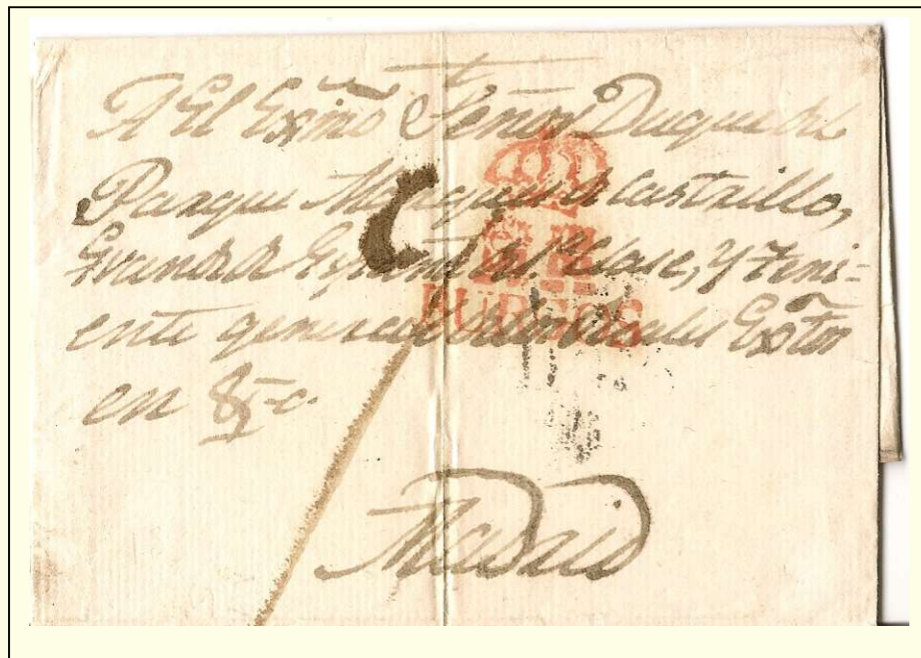 A El Exmõ Señor Duque del
Parque Marques de Castrillo,
Grande de España de 1ª Clase, y Teni-
ente general Exton
en &c.
BURGOS
Madrid